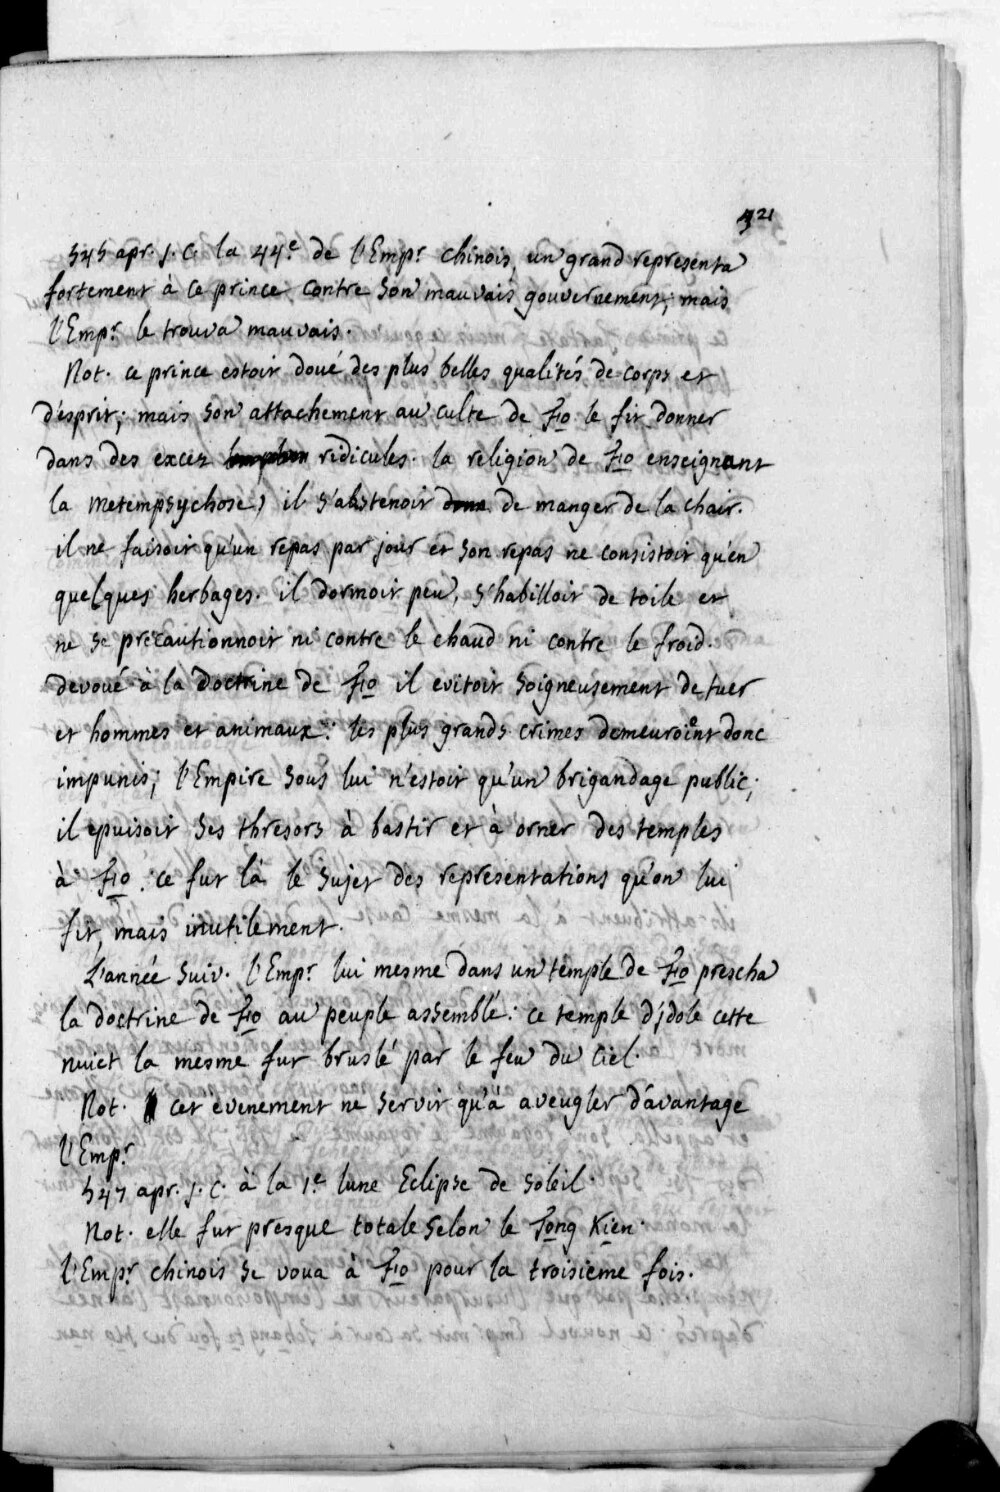 321
545 apr. J. C. la 44.e de l'Emp.r chinois, un grand representa
fortement à ce prince contre son mauvais gouvernement, mais
l'Emp.r le trouva mauvais.
Not. ce prince estoit doué des plus belles qualités de corps et
d'esprit; mais son attachement au culte de Fo le fit donner
dans des excez ridicules. la religion de Fo enseignant
la metempsychose, il s'abstenoit de manger de la chair.
il ne faisoit qu'un repas par jour et son repas ne consistoit qu'en
quelques herbages. il dormoit peu, s'habilloit de toile et
ne se precautionnoit ni contre le chaud ni contre le froid.
devoué à la doctrine de Fo il evitoit soigneusement de tuer
et hommes et animaux: les plus grands crimes demeuroint donc
impunis; l'Empire sous lui n'estoit qu'un brigandage public;
il epuisoit ses thresors à bastir et à orner des temples
à Fo. ce fut là le sujet des representations qu'on lui
fit, mais inutilement.
L'année suiv. l'Emp.r lui mesme dans un temple de Fo prescha
la doctrine de Fo au peuple assemblé: ce temple d'jdole cette
nuict la mesme fut bruslé par le feu du Ciel.
Not. cet evenement ne servit qu'à aveugler d'avantage
l'Emp.r
547 apr. J. C. à la 1.e lune Eclipse de soleil.
Not. elle fut presque totale selon le Tong Kien.
l'Emp.r chinois se voua à Fo pour la troisieme fois.